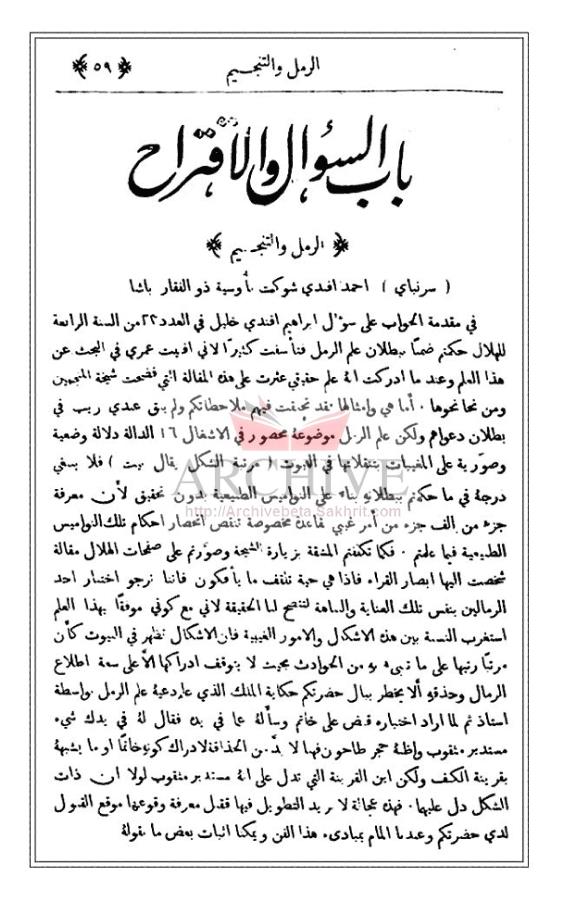 الرمل والتنجيم
﴿ ٥٩ ﴾
باب السؤال والاقتراح
﴿ الرمل والتنجيم ﴾
( سرنباي ) احمد افندي شوكت بأوسية ذو الفقار باشا
في مقدمة الجواب على سؤال ابراهيم افندي خليل في العدد ٢٢ من السنة الرابعة
للهلال حكمتم ضمنًا ببطلان علم الرمل فتأسفت كثيرًا لاني افنيت عمري في البحث عن
هذا العلم وعند ما ادركت انهُ علم حقيقي عثرت على هذه المقالة التي فضحت شيخة المنجمين
ومن نحا نحوها ٠ أما هي وامثالها فقد تحققت فيهم ملاحظاتكم ولم يبق عندي ريب في
بطلان دعواهم ولكن علم الرمل موضوعهُ محصور في الاشغال ١٦ الدالة دلالة وضعية
وصوَرية على المغيبات بتنقلاتها في البيوت ( مرتبة الشكل يقال بيت ) فلا ينبغي
درجهُ في ما حكمتم ببطلانهِ بناء على النواميس الطبيعية بدون تحقيق لأن معرفة
ARCHIVE
http://Archivebeta.Sakhrit.com
جزء من الف جزء من أمر غيبي بقاعدة مخصوصة تنقض انحصار احكام تلك النواميس
الطبيعية فيما علمتم ٠ فكما تكلفتم المشقة بزيارة الشيخة وصوَّرتم على صفحات الهلال مقالة
شخصت اليها ابصار القراء فاذا هي حية تلقف ما يأفكون فاننا نرجو اختبار احد
الرمالين بنفس تلك العناية والنباهة لتتضح لنا الحقيقة لاني مع كوني موفقًا بهذا العلم
استغرب النسبة بين هذه الاشكال والامور الغيبية فان الاشكال تظهر في البيوت كأن
مرتبًا رتبها على ما تنبىء به من الحوادث بحيث لا يتوقف ادراكها الا على سعة اطلاع
الرمال وحذقهِ ألا يخطر ببال حضرتكم حكاية الملك الذي علم ابنه علم الرمل بواسطة
استاذ ثم لما اراد اختباره قبض على خاتم وسألهُ عما في يده فقال لهُ في يدك شيء
مستدير مثقوب واظنهُ حجر طاحون فهنا لا بدَّ من الحذاقة لادراك كونه خاتمًا او ما يشبههُ
بقرينة الكف ولكن اين القرينة التي تدل على انهُ مستدير مثقوب لولا ان ذات
الشكل دل عليها ٠ فهذه عجالة لا نريد التطويل فيها فقبل معرفة وقوعها موقع القبول
لدى حضرتكم وعندنا المام بمبادىء هذا الفن ويمكننا اثبات بعض ما نقولهُ